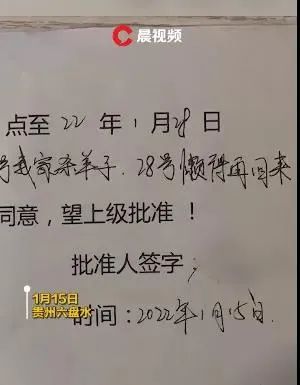 晨视频
点至 22 年 1 月 28 日
号我家杀羊子.28号懒得再回来
同意，望上级批准！
批准人签字；
1月15日
贵州六盘水
时间：2022年1月15日.